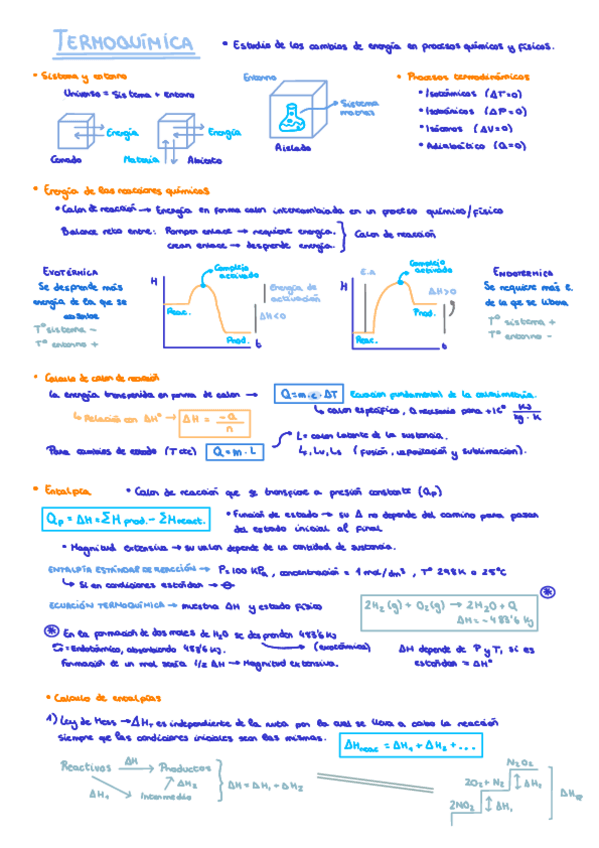 TERMOQUÍMICA
• Estudio de los cambios de energía en procesos químicos y físicos.
• Sistema y entorno
Universo = Sistema + entorno
Energía
Energía
Cerrado
Materia
Abierto
Entorno
Sistema
Aislado
• Procesos termodinámicos
• Isotérmicos (ΔT=0)
• Isobáricos (ΔP=0)
• Isócoros (ΔV=0)
• Adiabático (Q=0)
• Energía de las reacciones químicas
• Calor de reacción → Energía en forma calor intercambiada en un proceso químico/físico
Balance neto entre: Romper enlace → requiere energía.
crear enlace → desprende energía.
Calor de reacción
EXOTÉRMICA
Se desprende más
energía de la que se
Tº sistema -
Tº entorno +
H
Complejo
activado
Reac.
Energía de
activación
ΔH<0
Prod.
t
H
E.A
Complejo
activado
ΔH>0
Prod.
Reac.
t
ENDOTÉRMICA
Se requiere más E.
de la que se libera
Tº sistema +
Tº entorno -
• Cálculo de calor de reacción
La energía transferida en forma de calor →
Q=m·c·ΔT
Ecuación fundamental de la calorimetría.
↳ calor específico, Q necesario para +1Cº KJ/kg·K
↳ Relación con ΔHº → ΔH = -Q/n
Para cambios de estado (T cte) Q=m·L
L= calor latente de la sustancia.
Lf, Lv, Ls (fusión, vaporización y sublimación).
• Entalpía
• Calor de reacción que se transfiere a presión constante (Qp)
Qp = ΔH = ΣH prod. - ΣH react.
• Función de estado → su Δ no depende del camino para pasar
del estado inicial al final
• Magnitud extensiva → su valor depende de la cantidad de sustancia.
ENTALPÍA ESTÁNDAR DE REACCIÓN → P=100 KPa, concentración = 1 mol/dm³, Tº 298K o 25ºC
↳ Si en condiciones estándar →
ECUACIÓN TERMOQUÍMICA → muestra ΔH y estado físico
2H₂(g) + O₂(g) → 2H₂O + Q
ΔH = -483'6 KJ
En la formación de dos moles de H₂O se desprenden 483'6 KJ
= Endotérmica, absorbiendo 483'6 KJ.
(exotérmica)
Formación de un mol sería 1/2 ΔH → Magnitud extensiva.
ΔH depende de P y T, si es
estándar = ΔHº
• Cálculo de entalpías
1) Ley de Hess → ΔHr es independiente de la ruta por la cual se lleva a cabo la reacción
siempre que las condiciones iniciales sean las mismas.
ΔHreac = ΔH₁ + ΔH₂ + ...
Reactivos
ΔH
Productos
ΔH₁
Intermedio
ΔH₂
ΔH = ΔH₁ + ΔH₂
N₂O₂
2O₂ + N₂
ΔH₂
2NO₂
ΔH₁